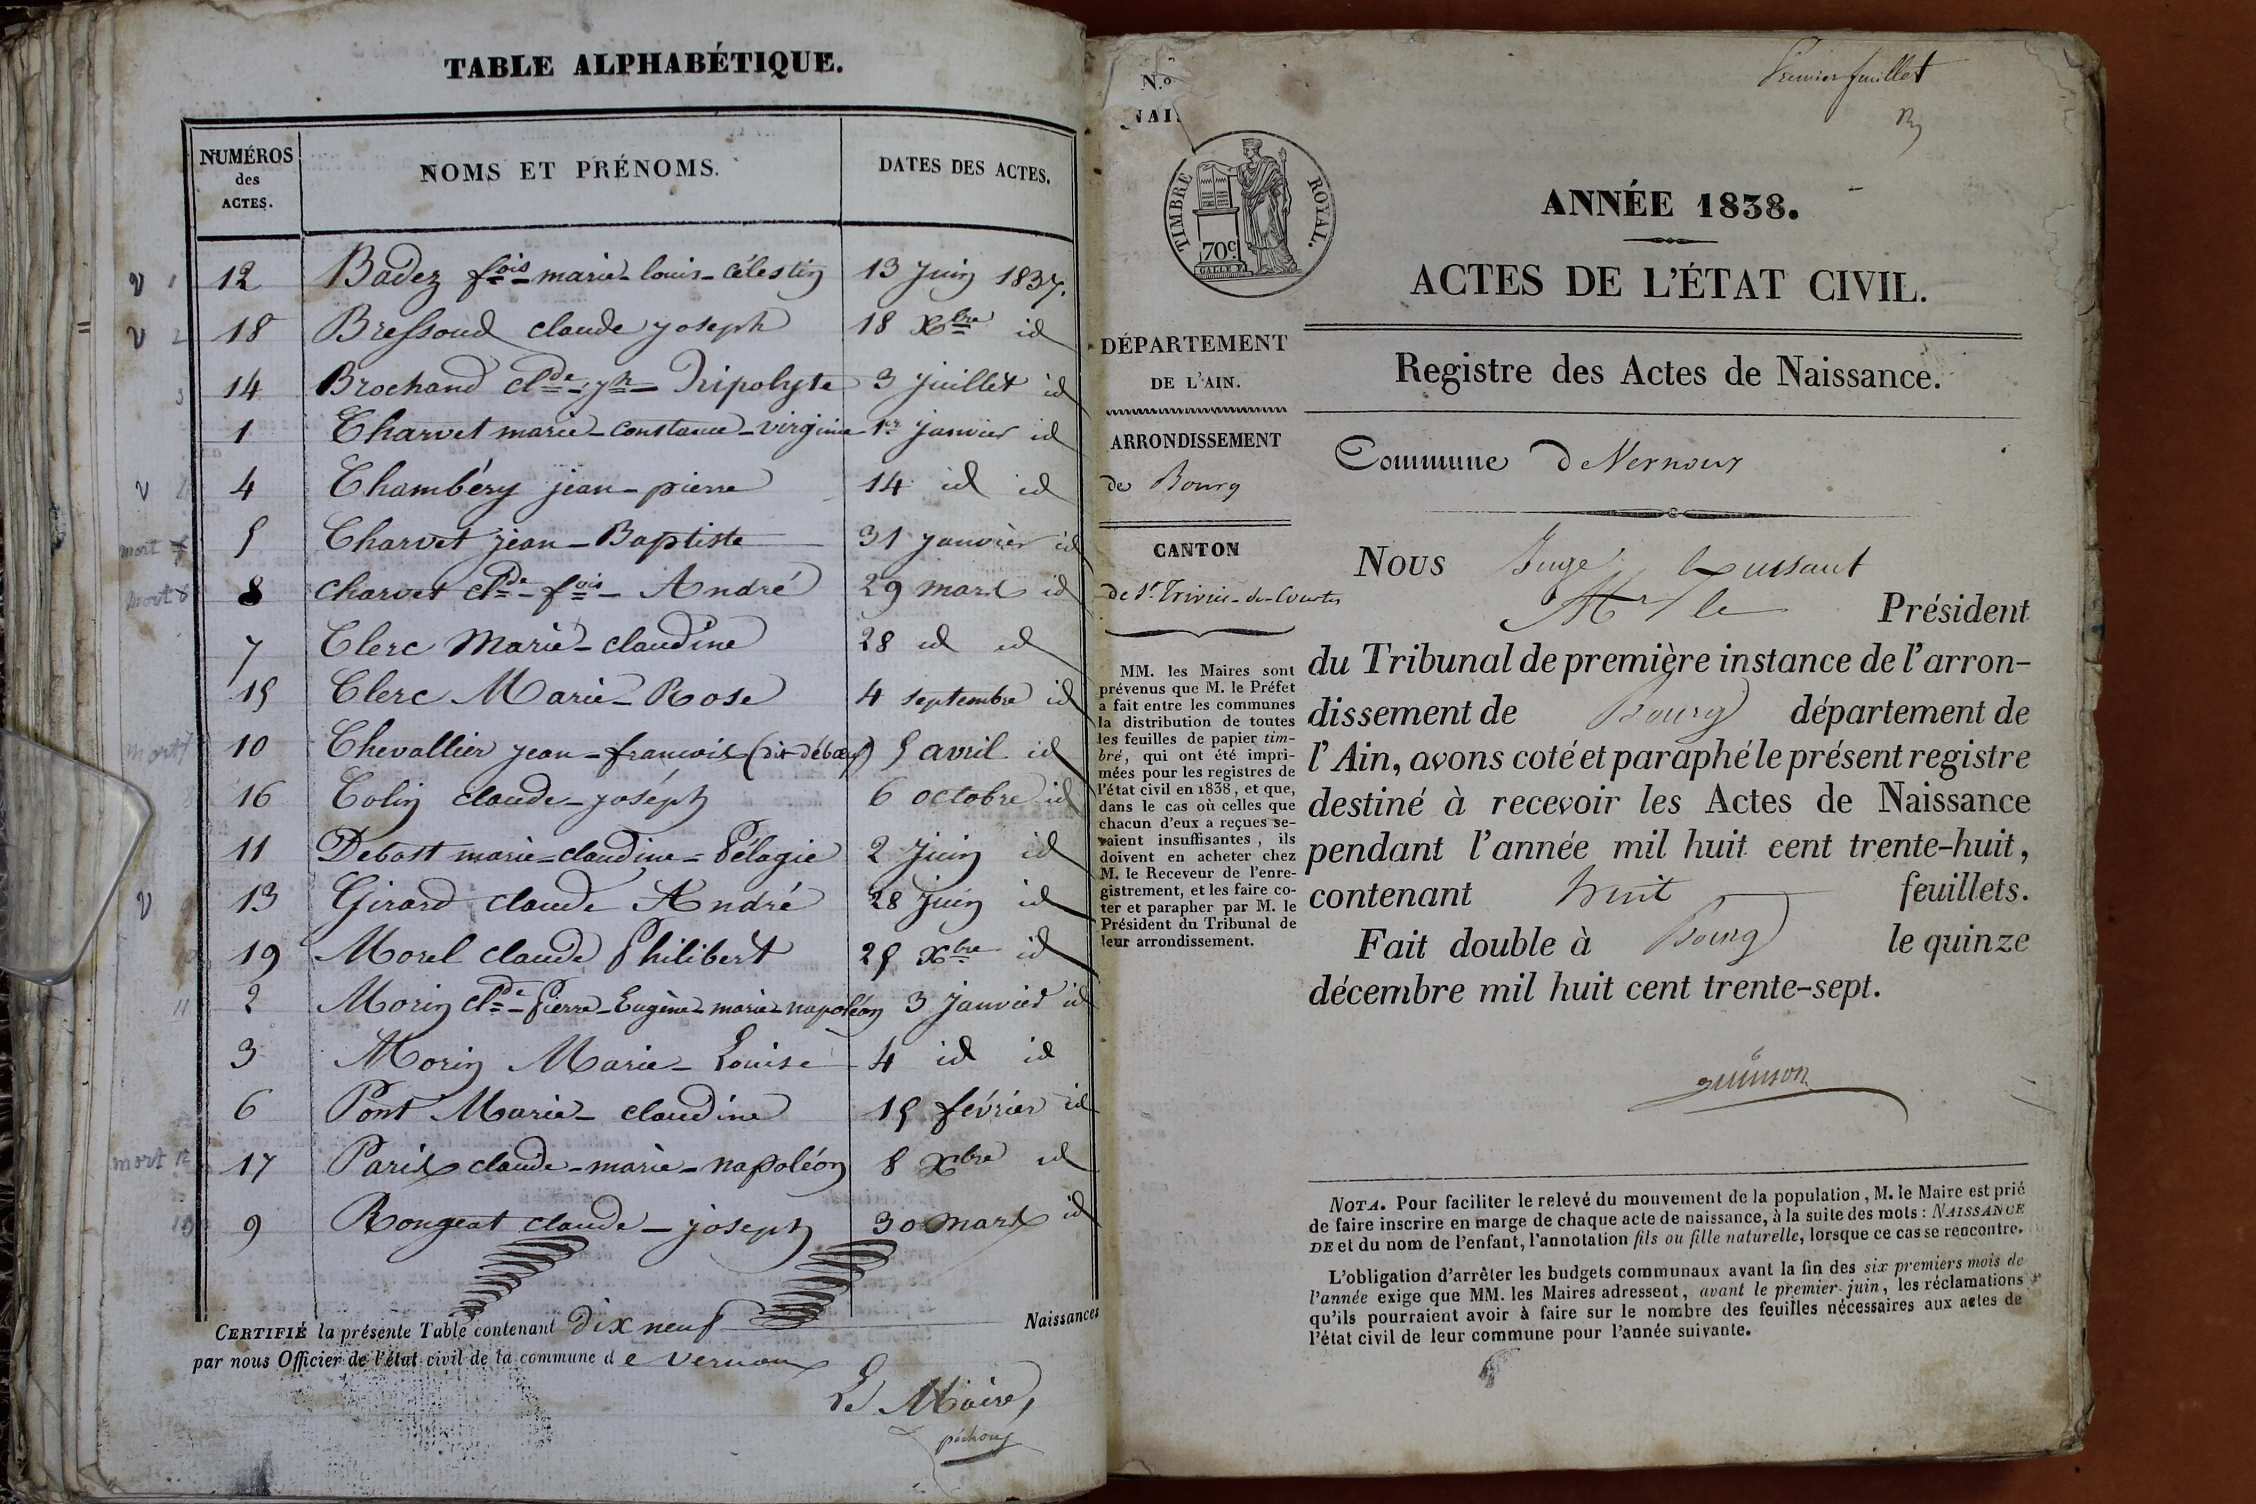 TABLE ALPHABÉTIQUE.
NUMÉROS des ACTES. NOMS ET PRÉNOMS. DATES DES ACTES.
12 Badez fois marie-louis-célestin 13 juin 1837.
18 Bressoud claude joseph 18 Xbre id
14 Brochand clde jh hipolyte 3 juillet id
1 Charvet marie-constance-virginie 1er janvier id
4 Chambéry jean-pierre 14 id id
5 Charvet jean-Baptiste 31 janvier id
8 charvet clde-fois-André 29 mars id
7 Clerc Marie-claudine 28 id id
15 Clerc Marie-Rose 4 septembre id
10 Chevallier jean-francois 5 avril id
16 Colin claude-joséph 6 octobre id
11 Debost marie-claudine-Pélagie 2 juin id
13 Girard claude André 28 juin id
19 Morel claude Philibert 25 Xbre id
2 Morin clde-Pierre-Eugène-marie-napoléon 3 janvier id
3 Morin Marie-Louise 4 id id
6 Pont Marie-claudine 15 février id
17 Paris claude-marie-napoléon 8 Xbre id
9 Rongeat claude-joseph 30 mars id
CERTIFIÉ la présente Table contenant dix neuf Naissances
par nous Officier de l'état civil de la commune de vernoux
Le Maire,
N.o
NAI
Premier feuillet
TIMBRE ROYAL.
70c.
ANNÉE 1838.
ACTES DE L'ÉTAT CIVIL.
DÉPARTEMENT
DE L'AIN.
ARRONDISSEMENT
de Bourg
CANTON
de St Trivier-de-Courtes
MM. les Maires sont
prévenus que M. le Préfet
a fait entre les communes
la distribution de toutes
les feuilles de papier tim-
bré, qui ont été impri-
mées pour les registres de
l'état civil en 1838, et que,
dans le cas où celles que
chacun d'eux a reçues se-
raient insuffisantes, ils
doivent en acheter chez
M. le Receveur de l'enre-
gistrement, et les faire co-
ter et parapher par M. le
Président du Tribunal de
leur arrondissement.
Registre des Actes de Naissance.
Commune de Vernoux
NOUS Juge
Mr le Président
du Tribunal de première instance de l'arron-
dissement de Bourg département de
l'Ain, avons coté et paraphé le présent registre
destiné à recevoir les Actes de Naissance
pendant l'année mil huit cent trente-huit,
contenant huit feuillets.
Fait double à Bourg le quinze
décembre mil huit cent trente-sept.
NOTA. Pour faciliter le relevé du mouvement de la population, M. le Maire est prié
de faire inscrire en marge de chaque acte de naissance, à la suite des mots : NAISSANCE
DE et du nom de l'enfant, l'annotation fils ou fille naturelle, lorsque ce cas se rencontre.
L'obligation d'arrêter les budgets communaux avant la fin des six premiers mois de
l'année exige que MM. les Maires adressent, avant le premier juin, les réclamations
qu'ils pourraient avoir à faire sur le nombre des feuilles nécessaires aux actes de
l'état civil de leur commune pour l'année suivante.